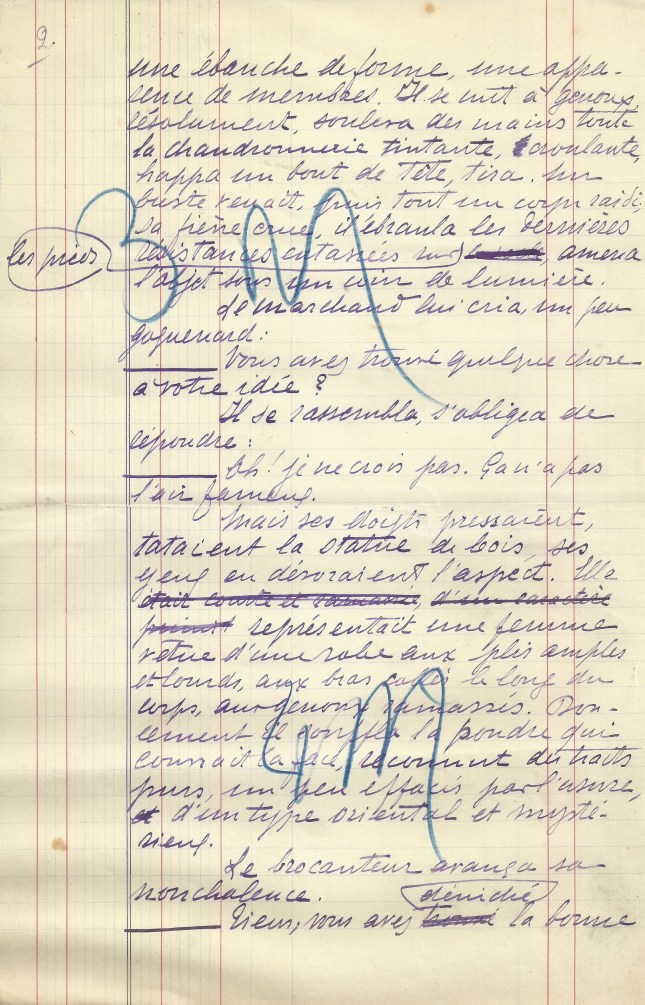 2.
une ébauche de forme, une appa-
rence de membres. Il se mit à genoux,
résolument, souleva des mains toute
la chaudronnerie tintante, croulante,
happa un bout de tête, tira. Un
buste venait, puis tout un corps raidi;
sa fièvre crue, il ébranla les dernières
les pieds
résistances entassées sur, amena
l'objet sous un coin de lumière.
Le marchand lui cria, un peu
goguenard:
— Vous avez trouvé quelque chose
à votre idée ?
Il se rassembla, s'obligea de
répondre :
— Oh! je ne crois pas. Ça n'a pas
l'air fameux.
Mais ses doigts pressaient,
tataient la statue de bois, ses
yeux en dévoraient l'aspect. Elle
était courte et ramassée, d'un caractère
représentait une femme
vêtue d'une robe aux plis amples
et lourds, aux bras collés le long du
corps, aux genoux ramassés. Dou-
cement il souffla la poudre qui
couvrait la face, reconnut des traits
purs, un peu effacés par l'usure,
et d'un type oriental et mysté-
rieux.
Le brocanteur avança sa
nonchalence.
déniché
— Tiens, vous avez trouvé la bonne
3 M
4 M